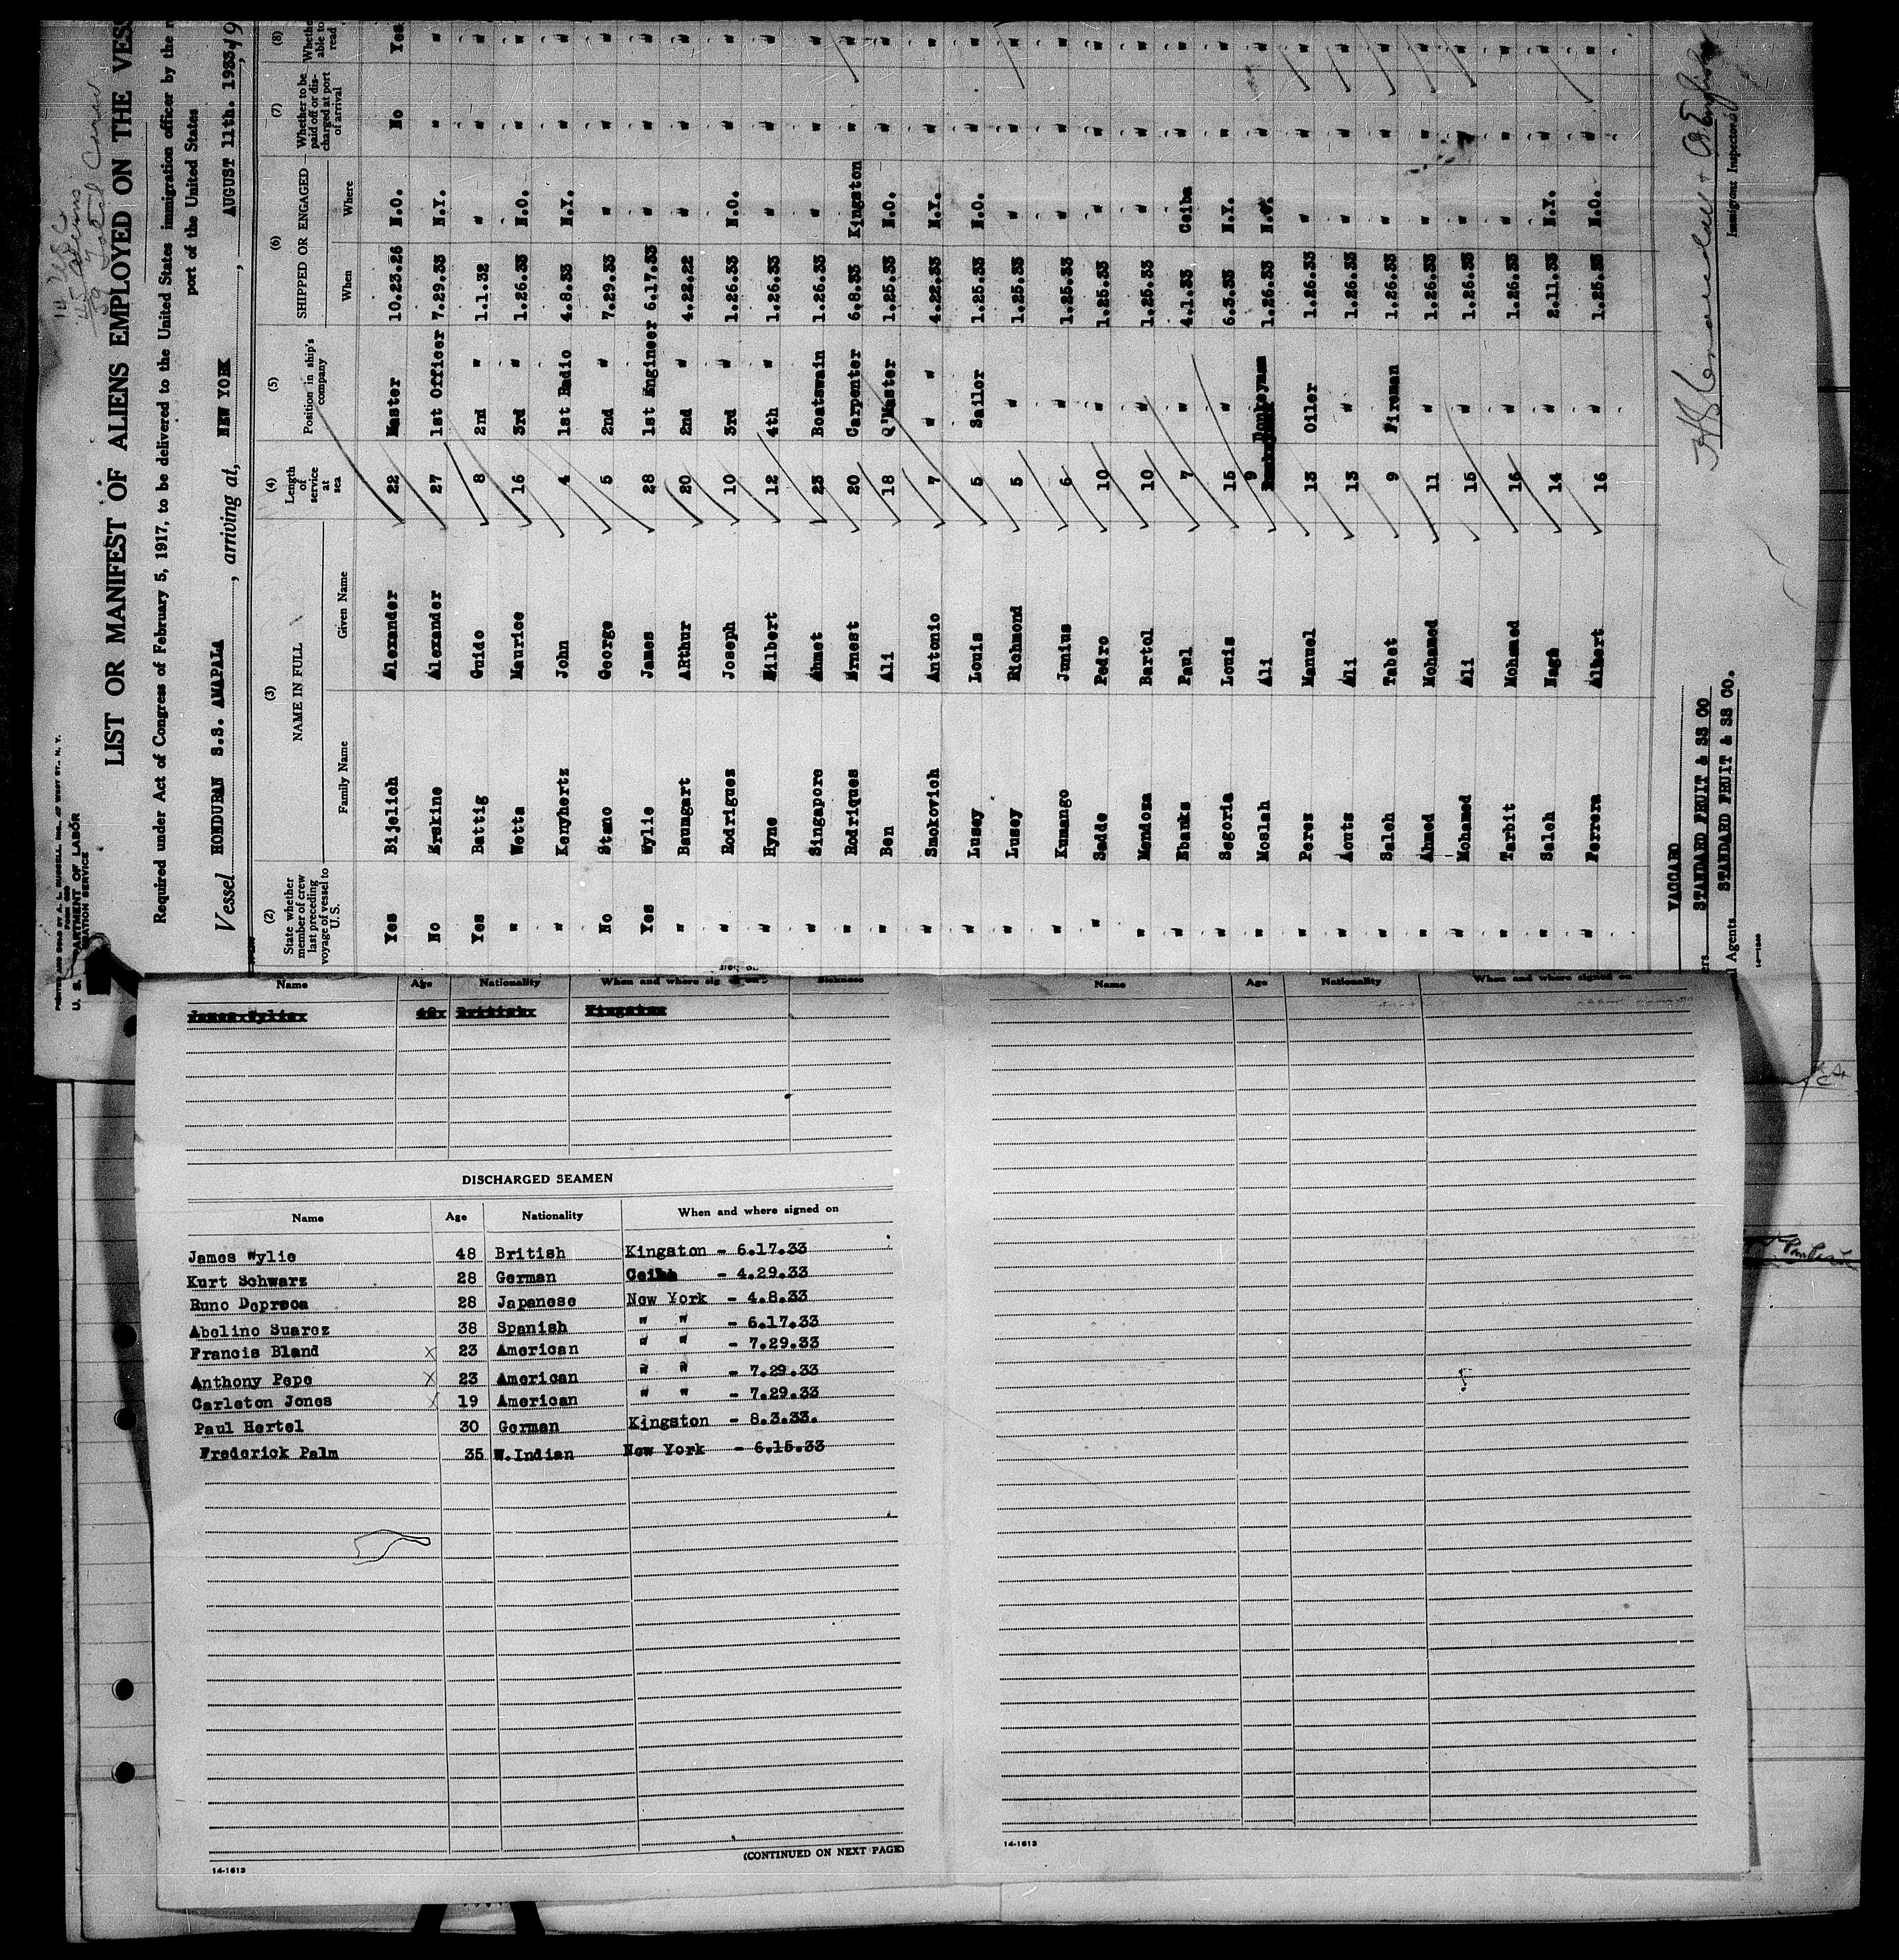 PRINTED AND SOLD BY A. L. RUSSELL, INC., 47 WEST ST., N. Y.
U. S. DEPARTMENT OF LABOR
LIST OR MANIFEST OF ALIENS EMPLOYED ON THE VES
Required under Act of Congress of February 5, 1917, to be delivered to the United States immigration officer by the r
port of the United States
Vessel HONDURAN S.S. AMAPALA, arriving at, NEW YORK, AUGUST 11th. 1933, 19
(2) (3) (4) (5) (6) (7) (8)
State whether member of crew last preceding voyage of vessel to U.S. NAME IN FULL Length of service at sea Position in ship's company SHIPPED OR ENGAGED Whether to be paid off or discharged at port of arrival Whethe able to read
Family Name Given Name When Where
Yes Bijelich Alexander 22 Master 10.23.26 N.O. No Yes
No Erskine Alexander 27 1st Officer 7.29.33 N.Y. " "
Yes Battig Guido 8 2nd " 1.1.32 " " "
" Wetta Maurice 16 3rd " 1.26.33 N.O. " "
" Kenyhertz John 4 1st Radio 4.8.33 N.Y. " "
No Stano George 5 2nd " 7.29.33 " " "
Yes Wylie James 28 1st Engineer 6.17.33 " " "
" Baumgart ARthur 20 2nd " 4.22.22 " " "
" Rodrigues Joseph 10 3rd " 1.26.33 N.O. " "
" Hyne Hilbert 12 4th " 1.26.33 " " "
" Singapore Ahmet 23 Boatswain 1.26.33 " " "
" Rodriques Ernest 20 Carpenter 6.8.33 Kingston " "
" Ben Ali 18 Q'Master 1.25.33 N.O. " "
" Smokovich Antonio 7 " " 4.22.33 N.Y. " "
" Lusey Louis 5 Sailor 1.25.33 N.O. " "
" Lusey Richmond 5 " 1.25.33 " " "
" Kumango Junius 6 " 1.25.33 " " "
" Sadde Pedro 10 " 1.25.33 " " "
" Mendosa Bartol 10 " 1.25.33 " " "
" Ebanks Paul 7 " 4.1.33 Ceiba " "
" Segoria Louis 15 " 6.3.33 N.Y. " "
" Moslah Ali 9 Donkeyman 1.26.33 N.O. " "
" Perez Manuel 13 Oiler 1.26.33 " " "
" Aouts Ali 13 " 1.26.33 " " "
" Saleh Tabet 9 Fireman 1.26.33 " " "
" Ahmed Mohamed 11 " 1.26.33 " " "
" Mohamed Ali 15 " 1.26.33 " " "
" Tarbit Mohamed 16 " 1.26.33 " " "
" Saleh Nagi 14 " 2.11.33 N.Y. " "
" Ferrera Albert 16 " 1.25.33 N.O. " "
VACCARO
STANDARD FRUIT & SS CO
Agents STANDARD FRUIT & SS CO.
Immigrant Inspector
Name Age Nationality When and where signed on Sickness
Name Age Nationality When and where signed on
DISCHARGED SEAMEN
Name Age Nationality When and where signed on
James Wylie 48 British Kingston - 6.17.33
Kurt Schwarz 28 German Ceiba - 4.29.33
Runo Depreca 28 Japanese New York - 4.8.33
Abelino Suarez 38 Spanish " " - 6.17.33
Francis Bland x 23 American " " - 7.29.33
Anthony Pepe x 23 American " " - 7.29.33
Carleton Jones 19 American " " - 7.29.33
Paul Hertel 30 German Kingston - 8.3.33.
Frederick Palm 35 W.Indian New York - 6.15.33
(CONTINUED ON NEXT PAGE)
14-1613
14-1613